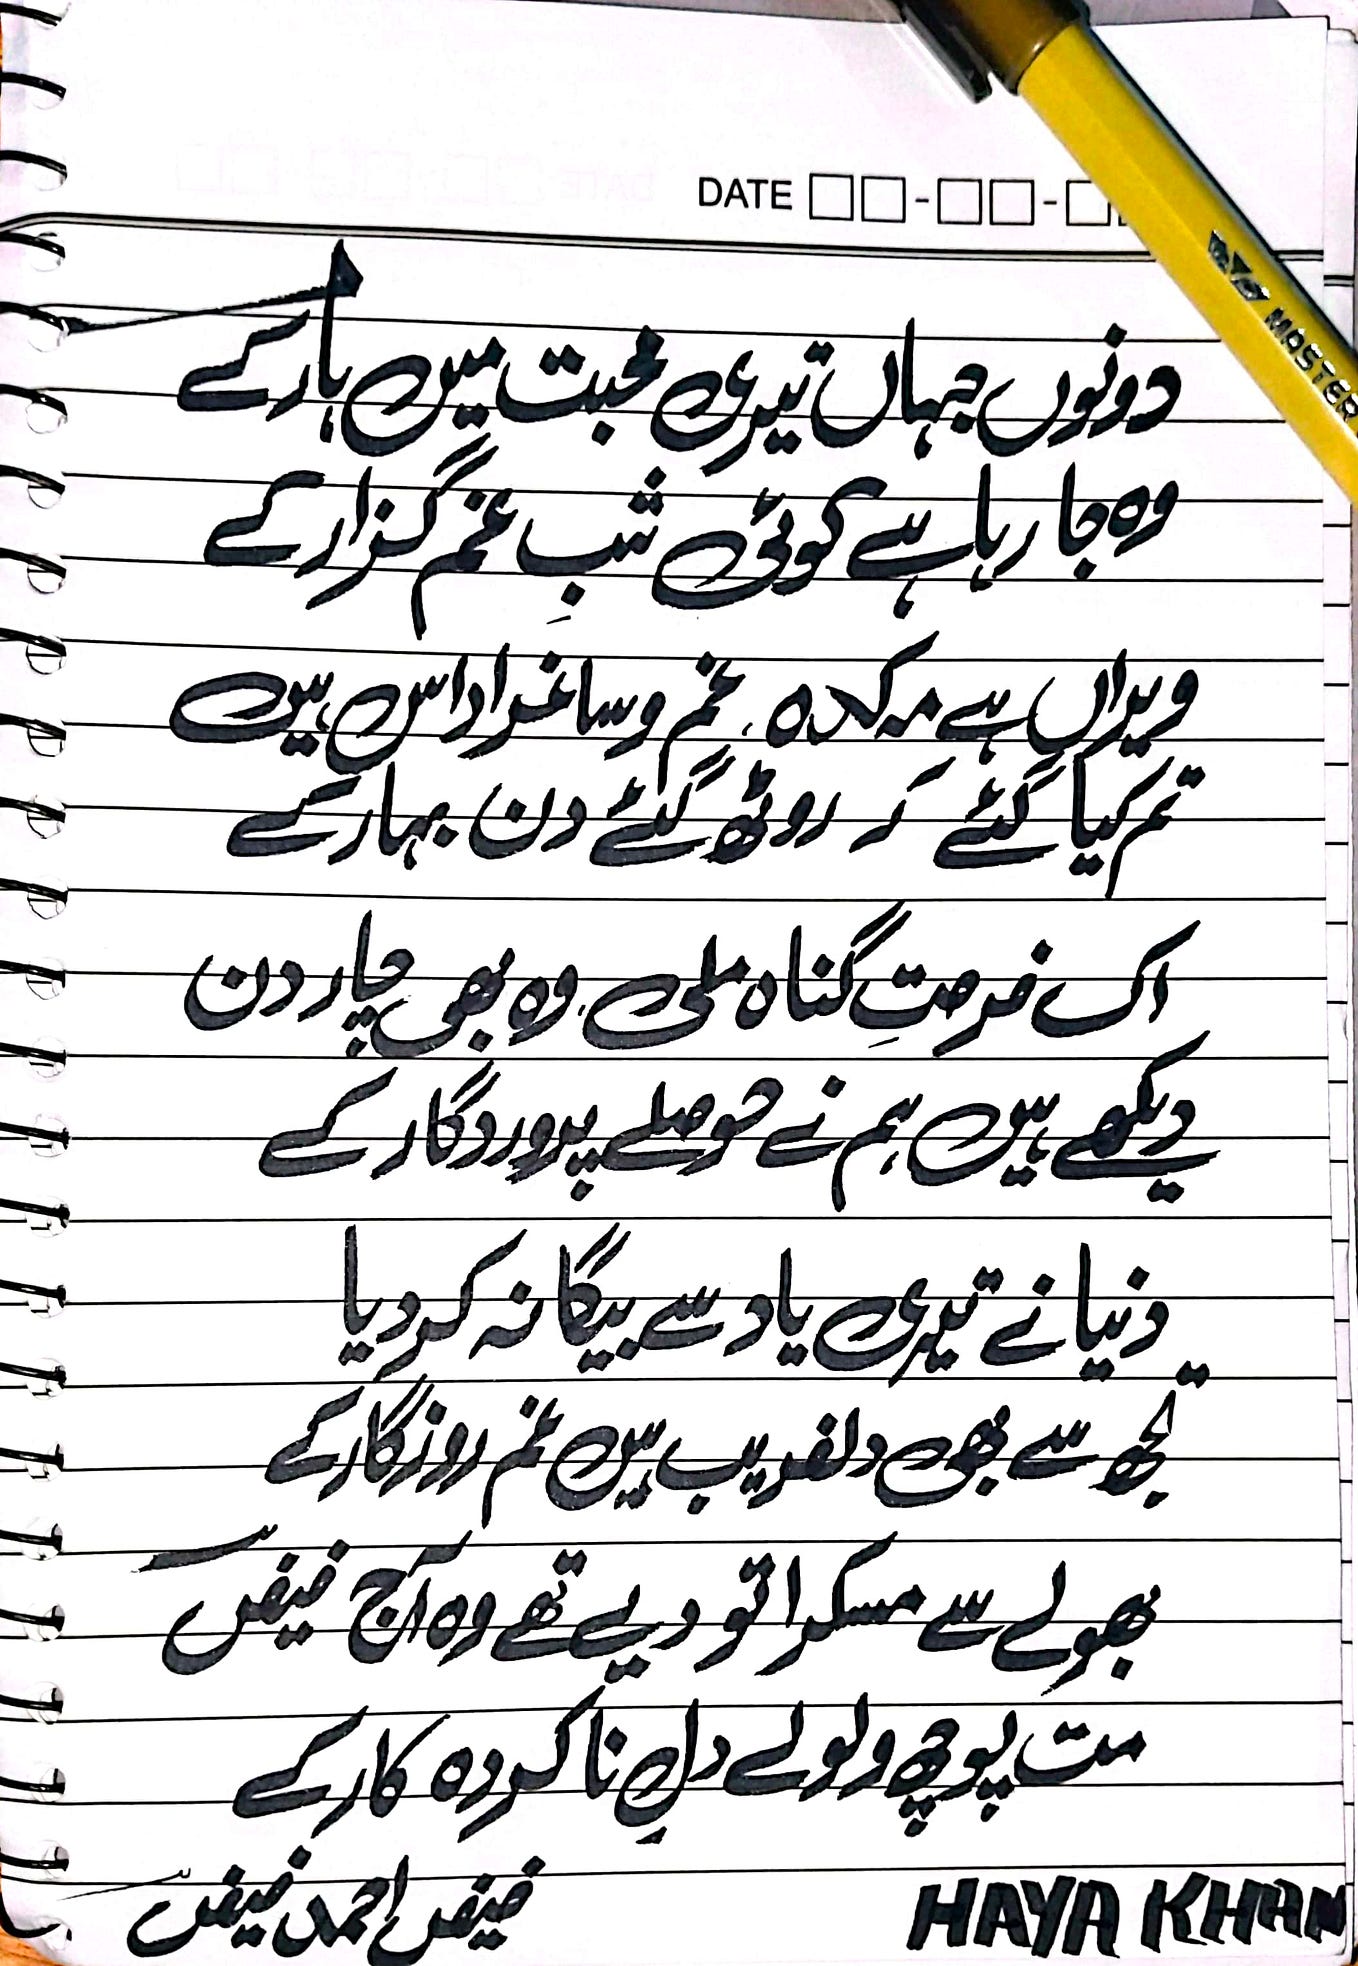 DATE
MASTER
دونوں جہاں تیری محبت میں ہار کے
وہ جا رہا ہے کوئی شبِ غم گزار کے
ویراں ہے مہ کدہ، غم و ساغر اداس ہیں
تم کیا گئے کہ روٹھ گئے دن بہار کے
اک فرصتِ گناہ ملی، وہ بھی چار دن
دیکھے ہیں ہم نے حوصلے پروردگار کے
دنیا نے تیری یاد سے بیگانہ کر دیا
تجھ سے بھی دلفریب ہیں غم روزگار کے
بھولے سے مسکرا تو دیے تھے وہ آج فیضؔ
مت پوچھ ولولے دلِ ناکردہ کار کے
فیض احمد فیضؔ
HAYA KHAN